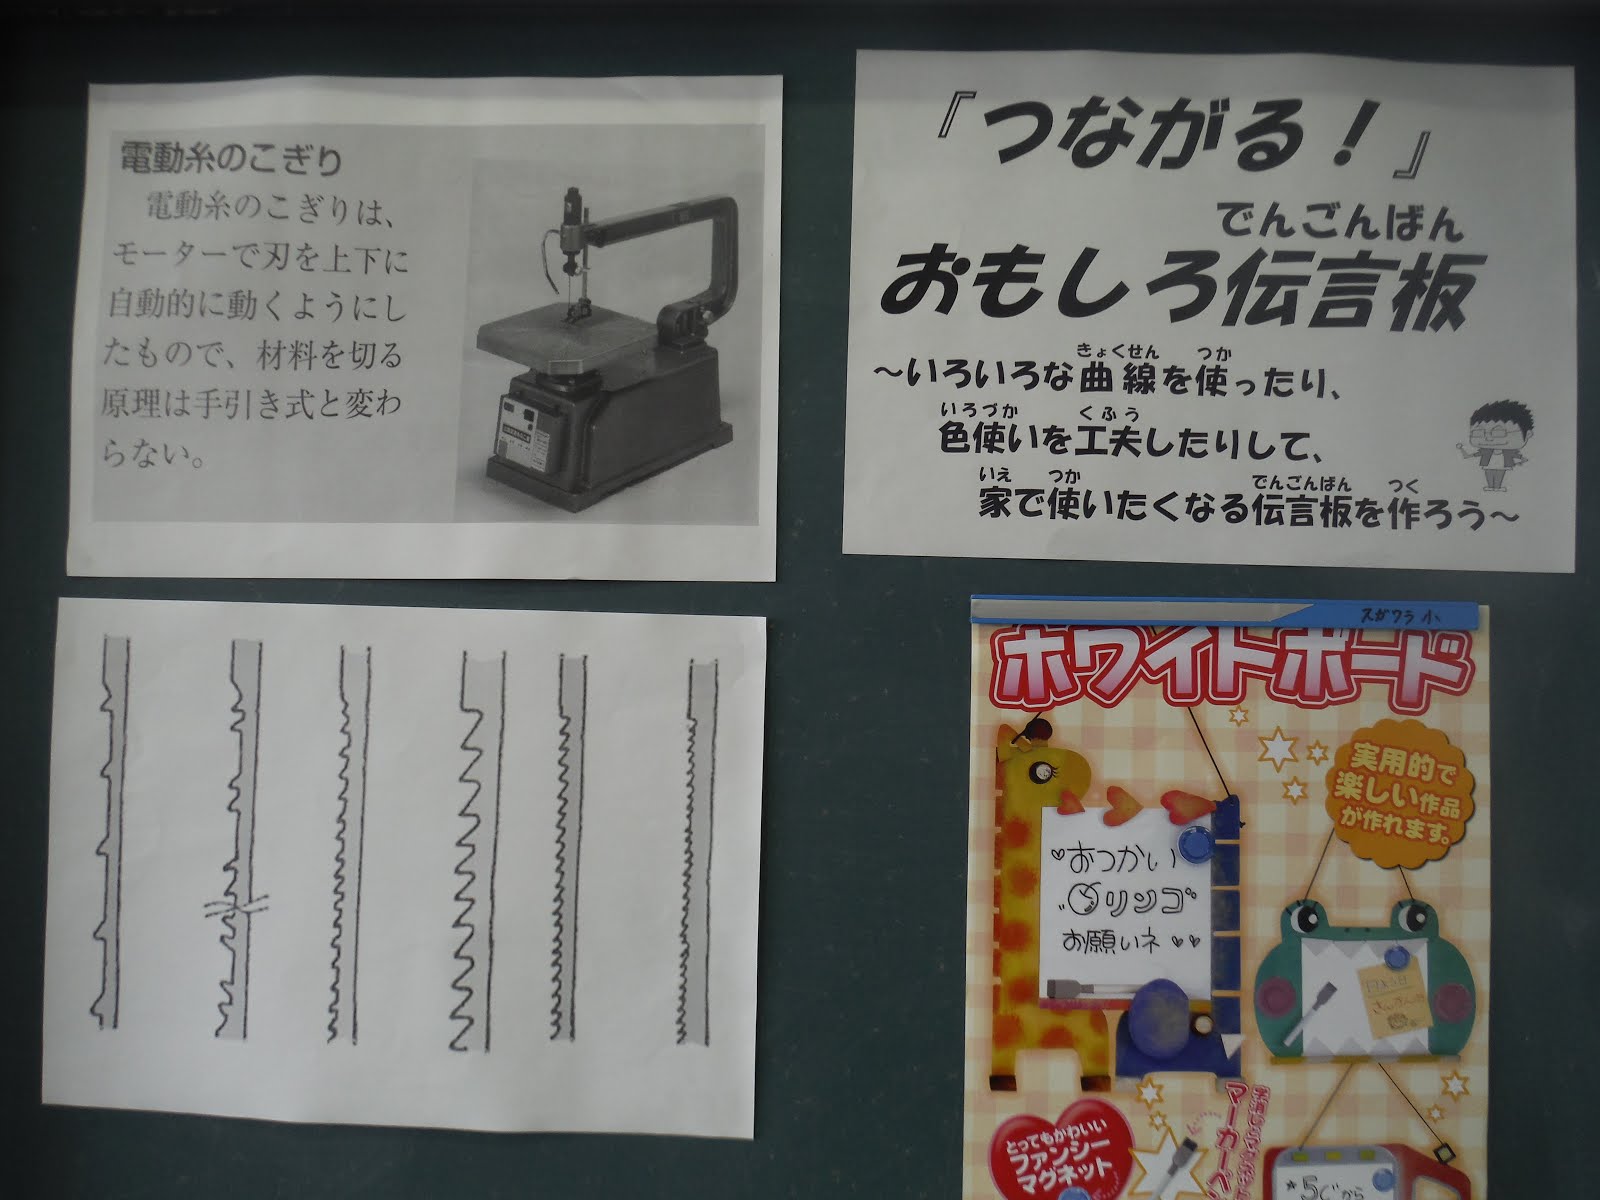 電動糸のこぎり
電動糸のこぎりは、
モーターで刃を上下に
自動的に動くようにし
たもので、材料を切る
原理は手引き式と変わ
らない。
『つながる！』
でんごんばん
おもしろ伝言板
きょくせん つか
～いろいろな曲線を使ったり、
いろづか くふう
色使いを工夫したりして、
いえ つか でんごんばん つく
家で使いたくなる伝言板を作ろう～
スガワラ小
ホワイトボード
実用的で
楽しい作品
が作れます。
おつかい
リンゴ
お願いネ
とってもかわいい
ファンシー
マグネット
マーカーペ
★5じから